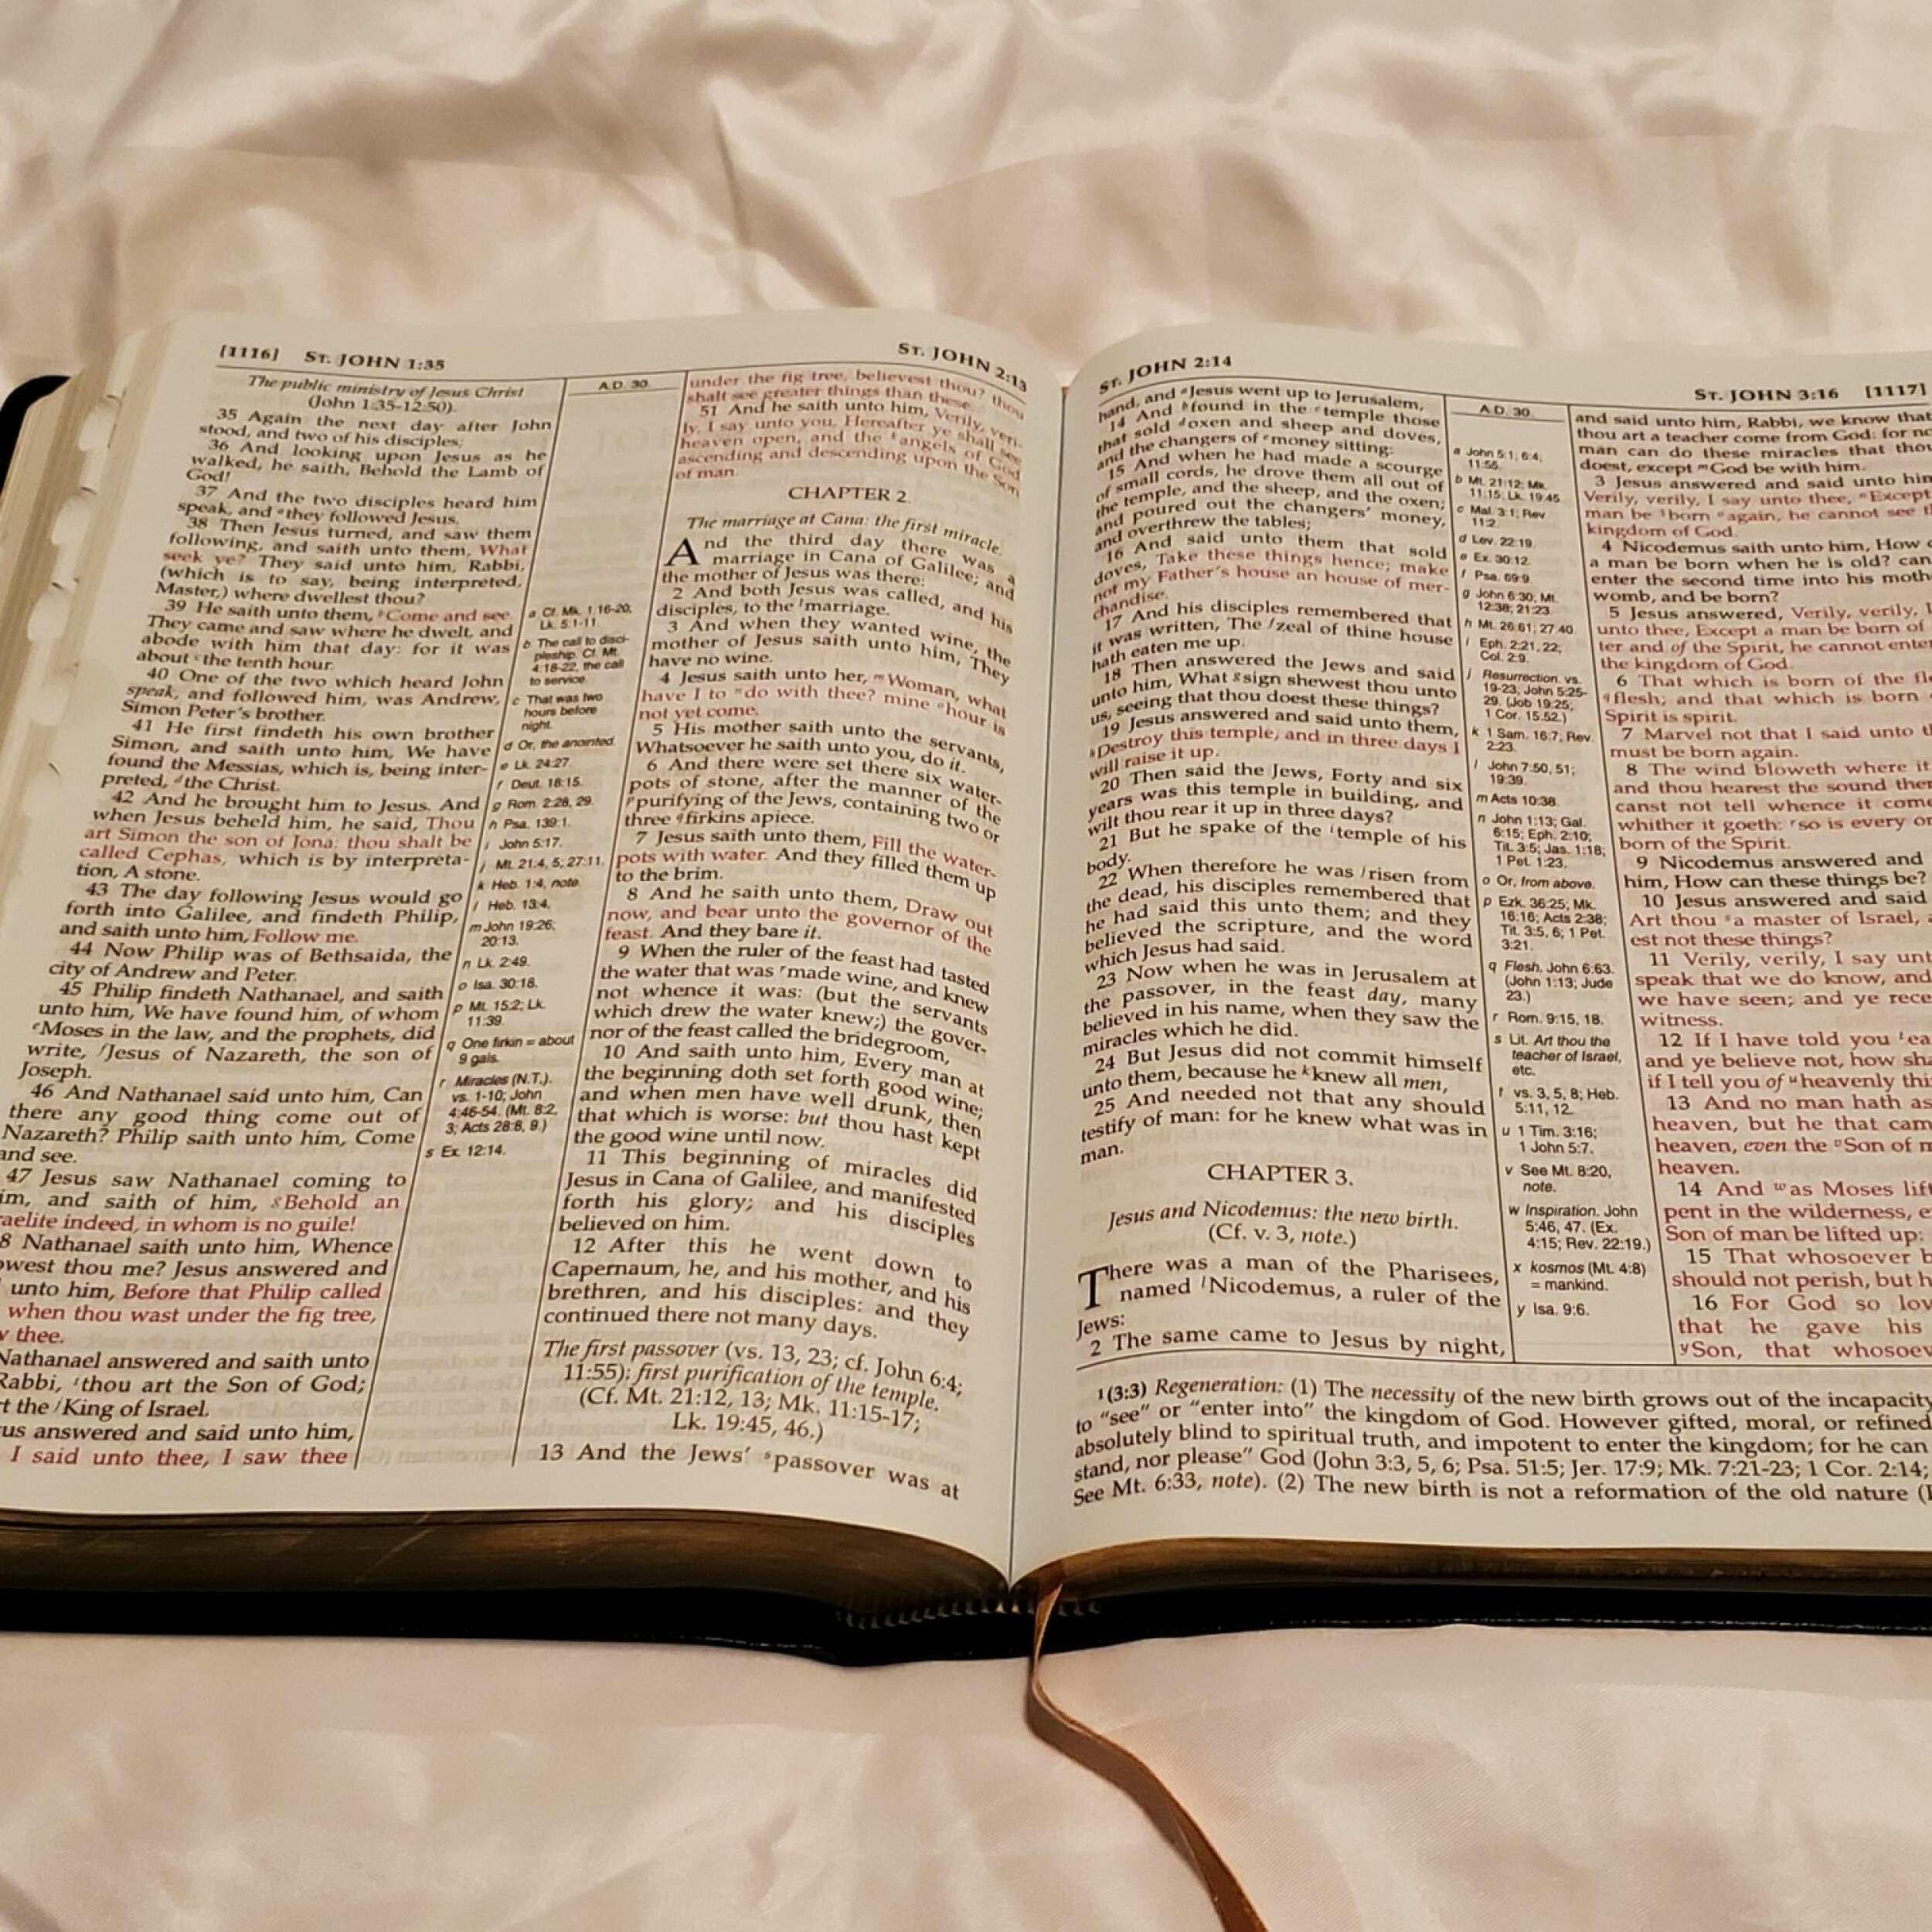 [1116] ST. JOHN 1:35
The public ministry of Jesus Christ
(John 1:35-12:50).
35 Again the next day after John
stood, and two of his disciples;
36 And looking upon Jesus as he
walked, he saith, Behold the Lamb of
God!
37 And the two disciples heard him
speak, and athey followed Jesus.
38 Then Jesus turned, and saw them
following, and saith unto them, What
seek ye? They said unto him, Rabbi,
(which is to say, being interpreted,
Master,) where dwellest thou?
39 He saith unto them, bCome and see.
They came and saw where he dwelt, and
abode with him that day: for it was
about cthe tenth hour.
40 One of the two which heard John
speak, and followed him, was Andrew,
Simon Peter's brother.
41 He first findeth his own brother
Simon, and saith unto him, We have
found the Messias, which is, being inter-
preted, dthe Christ.
42 And he brought him to Jesus. And
when Jesus beheld him, he said, Thou
art Simon the son of Jona: thou shalt be
called Cephas, which is by interpreta-
tion, A stone.
43 The day following Jesus would go
forth into Galilee, and findeth Philip,
and saith unto him, Follow me.
44 Now Philip was of Bethsaida, the
city of Andrew and Peter.
45 Philip findeth Nathanael, and saith
unto him, We have found him, of whom
eMoses in the law, and the prophets, did
write, fJesus of Nazareth, the son of
Joseph.
46 And Nathanael said unto him, Can
there any good thing come out of
Nazareth? Philip saith unto him, Come
and see.
47 Jesus saw Nathanael coming to
im, and saith of him, gBehold an
raelite indeed, in whom is no guile!
8 Nathanael saith unto him, Whence
owest thou me? Jesus answered and
unto him, Before that Philip called
when thou wast under the fig tree,
thee.
Nathanael answered and saith unto
Rabbi, ithou art the Son of God;
t the jKing of Israel.
us answered and said unto him,
I said unto thee, I saw thee
A.D. 30.
a Cf. Mk. 1:16-20,
Lk. 5:1-11.
b The call to disci-
pleship. Cf. Mt.
4:18-22, the call
to service.
c That was two
hours before
night.
d Or, the anointed.
e Lk. 24:27.
f Deut. 18:15.
g Rom. 2:28, 29.
h Psa. 139:1.
i John 5:17.
j Mt. 21:4, 5; 27:11.
k Heb. 1:4, note.
l Heb. 13:4.
m John 19:26;
20:13.
n Lk. 2:49.
o Isa. 30:18.
p Mt. 15:2; Lk.
11:39.
q One firkin = about
9 gals.
r Miracles (N.T.).
vs. 1-10; John
4:46-54. (Mt. 8:2,
3; Acts 28:8, 9.)
s Ex. 12:14.
ST. JOHN 2:13
under the fig tree, believest thou? thou
shalt see greater things than these.
51 And he saith unto him, Verily, veri-
ly, I say unto you, Hereafter ye shall see
heaven open, and the kangels of God
ascending and descending upon the Son
of man.
CHAPTER 2.
The marriage at Cana: the first miracle.
And the third day there was a
marriage in Cana of Galilee; and
the mother of Jesus was there:
2 And both Jesus was called, and his
disciples, to the lmarriage.
3 And when they wanted wine, the
mother of Jesus saith unto him, They
have no wine.
4 Jesus saith unto her, mWoman, what
have I to ndo with thee? mine ohour is
not yet come.
5 His mother saith unto the servants,
Whatsoever he saith unto you, do it.
6 And there were set there six water-
pots of stone, after the manner of the
ppurifying of the Jews, containing two or
three qfirkins apiece.
7 Jesus saith unto them, Fill the water-
pots with water. And they filled them up
to the brim.
8 And he saith unto them, Draw out
now, and bear unto the governor of the
feast. And they bare it.
9 When the ruler of the feast had tasted
the water that was rmade wine, and knew
not whence it was: (but the servants
which drew the water knew;) the gover-
nor of the feast called the bridegroom,
10 And saith unto him, Every man at
the beginning doth set forth good wine;
and when men have well drunk, then
that which is worse: but thou hast kept
the good wine until now.
11 This beginning of miracles did
Jesus in Cana of Galilee, and manifested
forth his glory; and his disciples
believed on him.
12 After this he went down to
Capernaum, he, and his mother, and his
brethren, and his disciples: and they
continued there not many days.
The first passover (vs. 13, 23; cf. John 6:4;
11:55): first purification of the temple.
(Cf. Mt. 21:12, 13; Mk. 11:15-17;
Lk. 19:45, 46.)
13 And the Jews' spassover was at
ST. JOHN 2:14
hand, and aJesus went up to Jerusalem,
14 And bfound in the ctemple those
that sold doxen and sheep and doves,
and the changers of emoney sitting:
15 And when he had made a scourge
of small cords, he drove them all out of
the temple, and the sheep, and the oxen;
and poured out the changers' money,
and overthrew the tables;
16 And said unto them that sold
doves, Take these things hence; make
not my Father's house an house of mer-
chandise.
17 And his disciples remembered that
it was written, The fzeal of thine house
hath eaten me up.
18 Then answered the Jews and said
unto him, What gsign shewest thou unto
us, seeing that thou doest these things?
19 Jesus answered and said unto them,
hDestroy this temple, and in three days I
will raise it up.
20 Then said the Jews, Forty and six
years was this temple in building, and
wilt thou rear it up in three days?
21 But he spake of the itemple of his
body.
22 When therefore he was jrisen from
the dead, his disciples remembered that
he had said this unto them; and they
believed the scripture, and the word
which Jesus had said.
23 Now when he was in Jerusalem at
the passover, in the feast day, many
believed in his name, when they saw the
miracles which he did.
24 But Jesus did not commit himself
unto them, because he kknew all men,
25 And needed not that any should
testify of man: for he knew what was in
man.
CHAPTER 3.
Jesus and Nicodemus: the new birth.
(Cf. v. 3, note.)
There was a man of the Pharisees,
named lNicodemus, a ruler of the
Jews:
2 The same came to Jesus by night,
A.D. 30.
a John 5:1; 6:4;
11:55.
b Mt. 21:12; Mk.
11:15; Lk. 19:45.
c Mal. 3:1; Rev.
11:2.
d Lev. 22:19.
e Ex. 30:12.
f Psa. 69:9.
g John 6:30; Mt.
12:38; 21:23.
h Mt. 26:61; 27:40.
i Eph. 2:21, 22;
Col. 2:9.
j Resurrection. vs.
19-23; John 5:25-
29. (Job 19:25;
1 Cor. 15:52.)
k 1 Sam. 16:7; Rev.
2:23.
l John 7:50, 51;
19:39.
m Acts 10:38.
n John 1:13; Gal.
6:15; Eph. 2:10;
Tit. 3:5; Jas. 1:18;
1 Pet. 1:23.
o Or, from above.
p Ezk. 36:25; Mk.
16:16; Acts 2:38;
Tit. 3:5, 6; 1 Pet.
3:21.
q Flesh. John 6:63.
(John 1:13; Jude
23.)
r Rom. 9:15, 18.
s Lit. Art thou the
teacher of Israel,
etc.
t vs. 3, 5, 8; Heb.
5:11, 12.
u 1 Tim. 3:16;
1 John 5:7.
v See Mt. 8:20,
note.
w Inspiration. John
5:46, 47. (Ex.
4:15; Rev. 22:19.)
x kosmos (Mt. 4:8)
= mankind.
y Isa. 9:6.
ST. JOHN 3:16 [1117]
and said unto him, Rabbi, we know that
thou art a teacher come from God: for no
man can do these miracles that thou
doest, except mGod be with him.
3 Jesus answered and said unto him
Verily, verily, I say unto thee, nExcept
man be 1born oagain, he cannot see t
kingdom of God.
4 Nicodemus saith unto him, How c
a man be born when he is old? can
enter the second time into his moth
womb, and be born?
5 Jesus answered, Verily, verily, I
unto thee, Except a man be born of
ter and of the Spirit, he cannot enter
the kingdom of God.
6 That which is born of the fle
qflesh; and that which is born
Spirit is spirit.
7 Marvel not that I said unto t
must be born again.
8 The wind bloweth where it
and thou hearest the sound ther
canst not tell whence it come
whither it goeth: rso is every on
born of the Spirit.
9 Nicodemus answered and
him, How can these things be?
10 Jesus answered and said
Art thou sa master of Israel, a
est not these things?
11 Verily, verily, I say unt
speak that we do know, and
we have seen; and ye rece
witness.
12 If I have told you tea
and ye believe not, how sha
if I tell you of uheavenly thi
13 And no man hath as
heaven, but he that cam
heaven, even the vSon of m
heaven.
14 And was Moses lift
pent in the wilderness, e
Son of man be lifted up:
15 That whosoever b
should not perish, but h
16 For God so lov
that he gave his
ySon, that whosoev
1(3:3) Regeneration: (1) The necessity of the new birth grows out of the incapacity
to "see" or "enter into" the kingdom of God. However gifted, moral, or refined
absolutely blind to spiritual truth, and impotent to enter the kingdom; for he can
stand, nor please" God (John 3:3, 5, 6; Psa. 51:5; Jer. 17:9; Mk. 7:21-23; 1 Cor. 2:14;
See Mt. 6:33, note). (2) The new birth is not a reformation of the old nature (